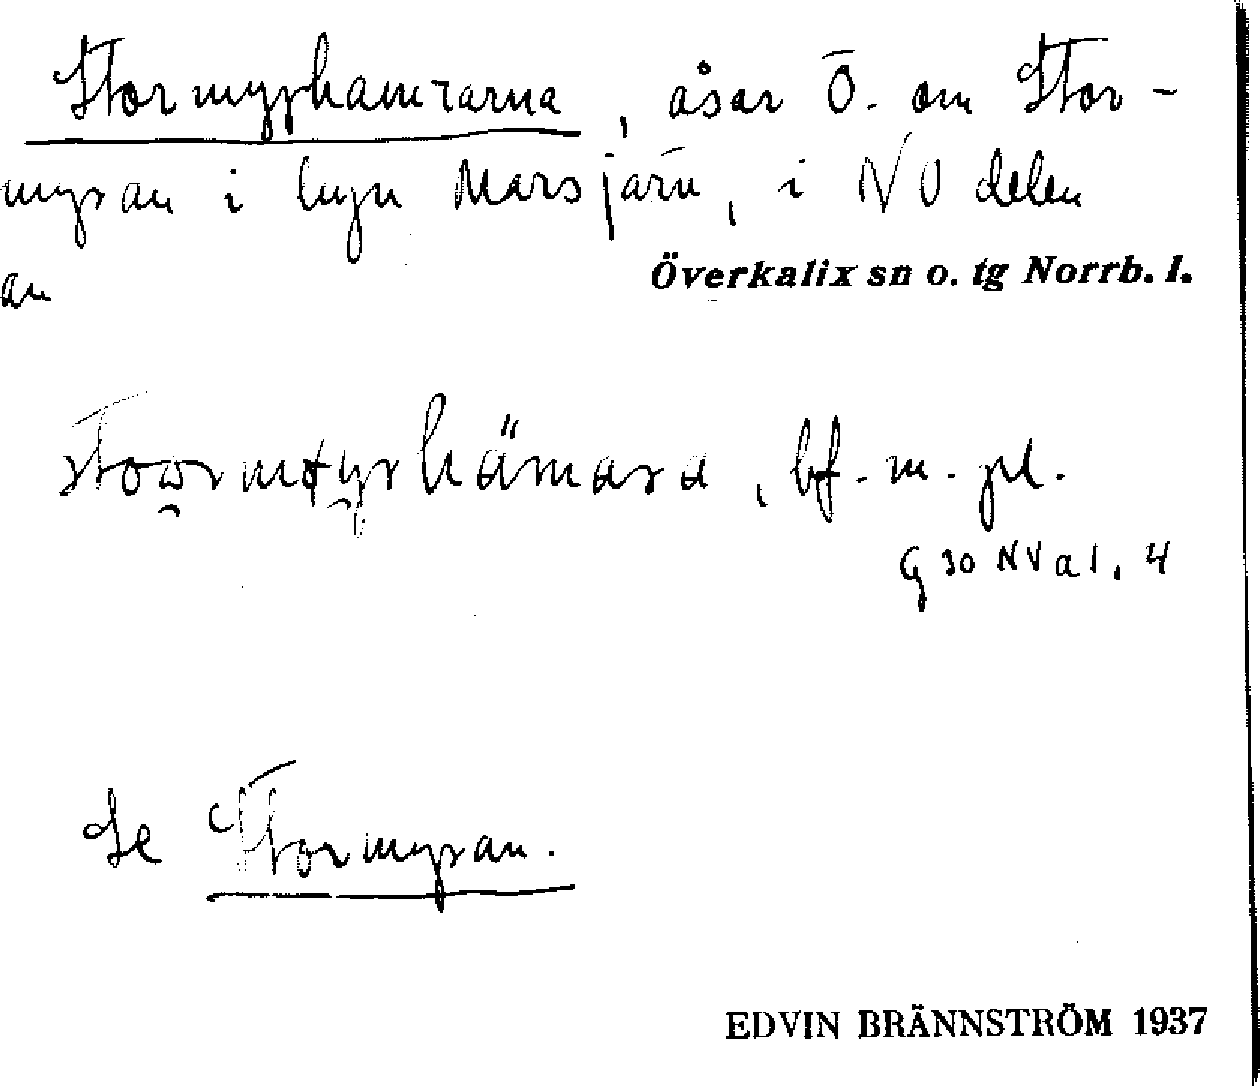 Stormyrhamrarna, åsar Ö. om Stor-
myran i byn Marsjärv, i NO delen
av
Överkalix sn o. tg Norrb. l.
bf. m. pl.
G 30 NV a 1, 4
Se Stormyran.
EDVIN BRÄNNSTRÖM 1937